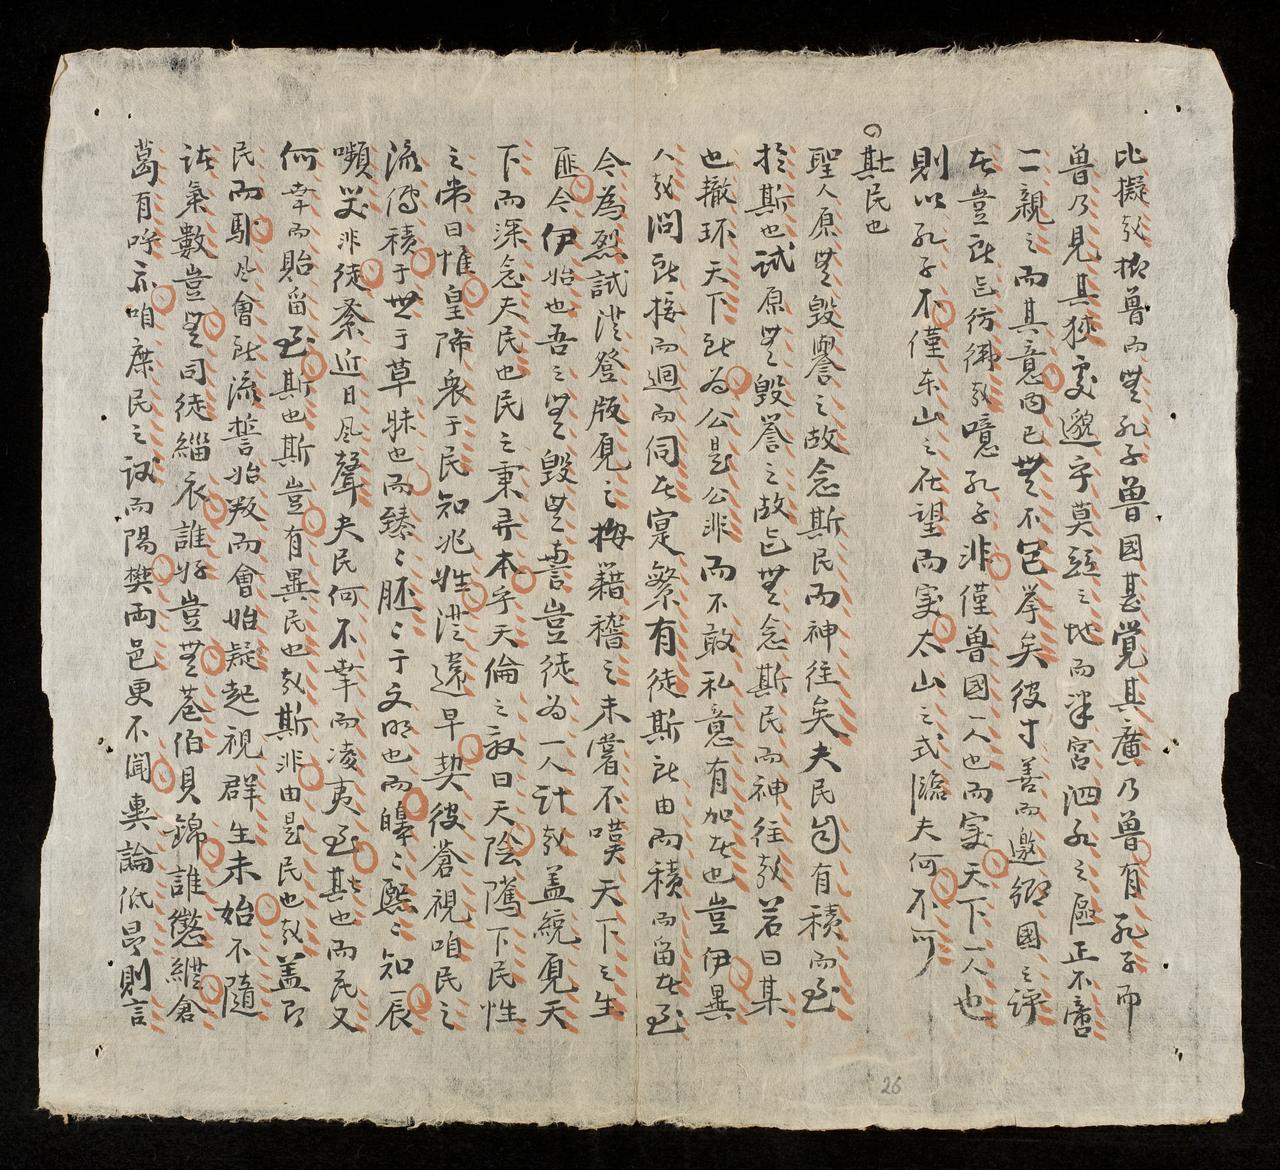 比擬哉抑魯而無孔子魯國甚覺其廣乃魯有孔子而
魯乃見其狹處邈乎莫題之地而泮宮泗水之區正不啻
二親之而其意內已無不包舉矣彼寸善而邀鄉國之評
者豈所忘彷彿哉噫孔子非僅魯國一人也而寔天下一人也
則以孔子不僅東山之在望而寔太山之式瞻夫何不可
斯民也
聖人原無毀譽之故念斯民而神往矣夫民固有積而至
於斯也試原無毀譽之故忘無念斯民而神往哉若曰某
也轍環天下所為公是公非而不敢私意有加者也豈伊異
人哉問所接而迴而伺者寔繁有徒斯所由而積而留者至
今為烈試從登版見之梅籍稽之未嘗不嘆天下之生
匪今伊始也吾之無毀無譽豈徒為一人計哉盖統覓天
下而深念夫民也民之秉彝本乎天倫之敘曰天陰隲下民性
之帝曰惟皇降衷于民知兆姓從遠早契彼蒼視咱民之
流傳積于世于草昧也而臻〻胚〻于文明也而皞〻熙〻知辰
嚬笑非徒紊近日風聲夫民何不幸而凌夷至斯也而民又
何幸而貽留至斯也斯豈有異民也哉斯非由是民也哉盖即
民而馭風會所流誓始叛而會始疑起視群生未始不隨
諸氣數豈無司徒緇衣誰好豈無巷伯貝錦誰懲縱倉
葛有呼亦咱庶民之議而陽樊兩邑更不聞輿論低昂則言